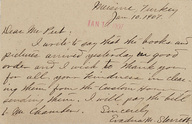 Marsovan, Turkey
Jan. 10, 1907
Dear Mr. Peet:
I write to say that the books and
pictures arrived yesterday in good
order and I wish to thank you
for all your kindness in clear-
ing them from the Custom house
sending them. I will pay the bill
to Mr. Chambers.
Sincerely,